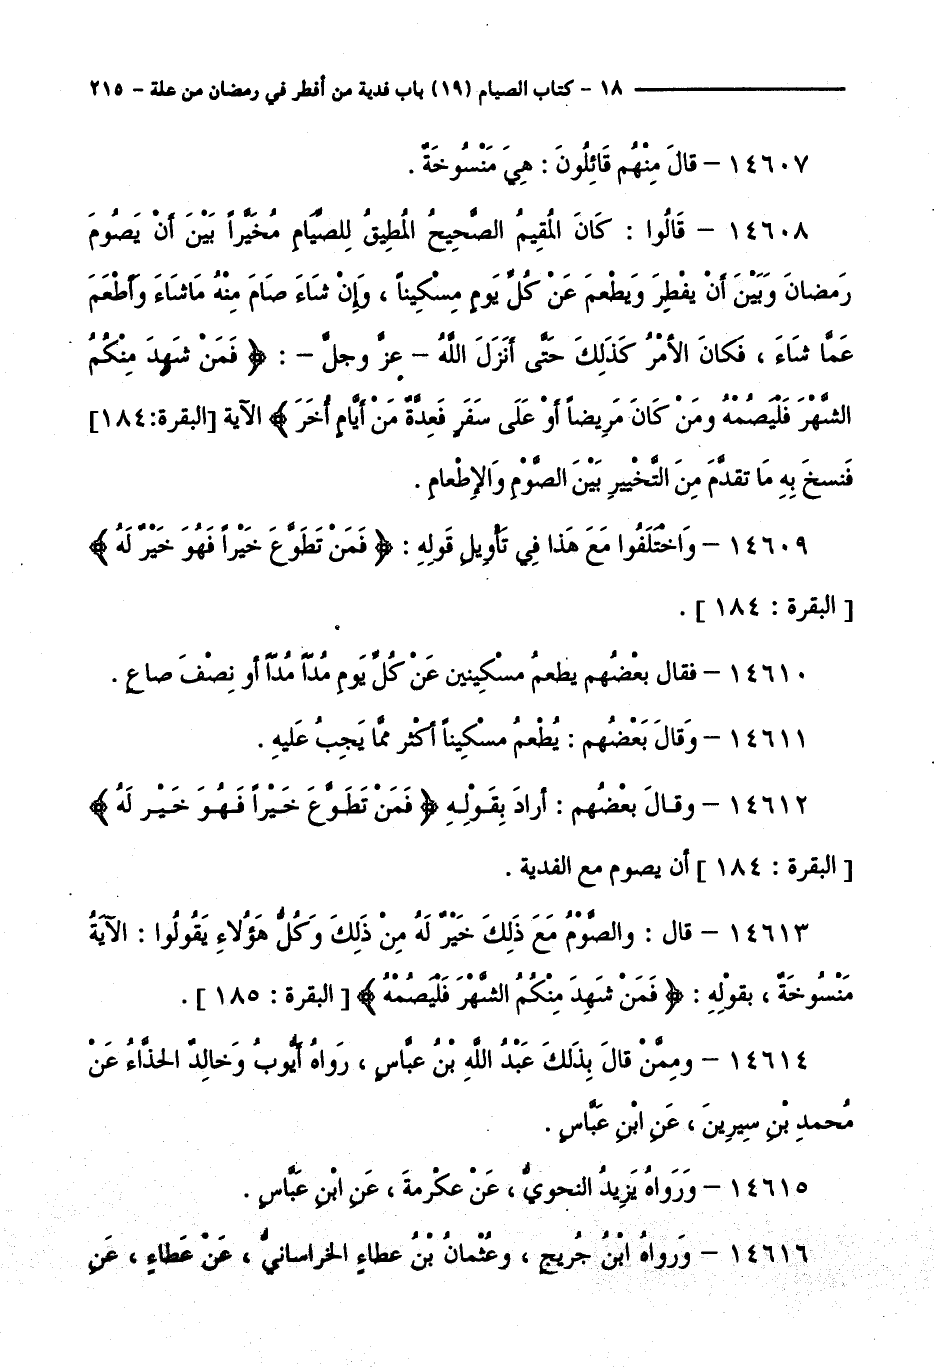 ١٨ - كتاب الصيام (١٩) باب فدية من أفطر في رمضان من علة - ٢١٥
١٤٦٠٧ - قالَ مِنْهُم قَائِلُونَ : هِيَ مَنْسُوخَةٌ .
١٤٦٠٨ - قَالُوا : كَانَ المُقِيمُ الصَّحِيحُ المُطِيقُ لِلصِّيَامِ مُخَيَّراً بَيْنَ أَنْ يَصُومَ
رَمضانَ وَبَيْنَ أَنْ يفْطِرَ وَيَطْعمَ عَنْ كُلِّ يَومٍ مِسْكِيناً ، وَإِنْ شاءَ صَامَ مِنْهُ مَاشَاءَ وَأَطْعَمَ
عَمَّا شَاءَ ، فَكانَ الأَمْرُ كَذَلِكَ حَتَّى أَنْزَلَ اللَّهُ - عزَّ وجلَّ - : ﴿ فَمَنْ شَهِدَ مِنْكُمُ
الشَّهْرَ فَلْيَصُمْهُ ومَنْ كَانَ مَرِيضاً أَوْ عَلَى سَفَرٍ فَعِدَّةٌ مَنْ أَيَّامٍ أُخَرَ ﴾ الآية [البقرة:١٨٤]
فَنسخَ بِهِ مَا تقدَّمَ مِنَ التَّخْيِيرِ بَيْنَ الصَّوْمِ وَالإِطْعامِ .
١٤٦٠٩ - وَاخْتَلَفُوا مَعَ هَذا فِي تَأْوِيلِ قَولِهِ : ﴿ فَمَنْ تَطَوَّعَ خَيْراً فَهُوَ خَيْرٌ لَهُ ﴾
[ البقرة : ١٨٤ ] .
١٤٦١٠ - فقال بعْضُهم يطعمُ مسْكِينين عَنْ كُلِّ يَومٍ مُدّاً مُدّاً أو نِصْفَ صاعٍ .
١٤٦١١ - وَقَالَ بَعْضُهم : يُطْعِمُ مسْكِيناً أكْثر ممَّا يَجِبُ عَليهِ .
١٤٦١٢ - وقـالَ بعْضُهم : أرادَ بِقَـوْلِـهِ ﴿ فَمَنْ تَطَـوَّعَ خَـيْـراً فَـهُـوَ خَـيْـر لَهُ ﴾
[ البقرة : ١٨٤ ] أن يصوم مع الفدية .
١٤٦١٣ - قال : والصَّوْمُ مَعَ ذَلِكَ خَيْرٌ لَهُ مِنْ ذَلِكَ وَكُلُّ هَؤُلاءِ يَقُولُوا : الآيَةُ
مَنْسُوخَةٌ ، بقولِهِ : ﴿ فَمَنْ شَهِدَ مِنْكُمُ الشَّهْرَ فَلْيَصُمْهُ ﴾ [ البقرة : ١٨٥ ] .
١٤٦١٤ - وممِمَّنْ قالَ بِذَلكَ عَبْدُ اللَّهِ بْنُ عبَّاسٍ ، رَواهُ أَيُّوبُ وَخالِدٌ الحَذَّاءُ عَنْ
مُحمدِ بْنِ سِيرِينَ ، عَنِ ابْنِ عَبَّاسٍ .
١٤٦١٥ - وَرَوَاهُ يَزِيدُ النحويُّ ، عَنْ عكْرمةَ ، عَنِ ابْنِ عَبَّاسٍ .
١٤٦١٦ - وَرواهُ ابْنُ جُريجٍ ، وعُثْمانُ بْنُ عطاءٍ الخراسانيُّ ، عَنْ عَطاءٍ ، عَنِ